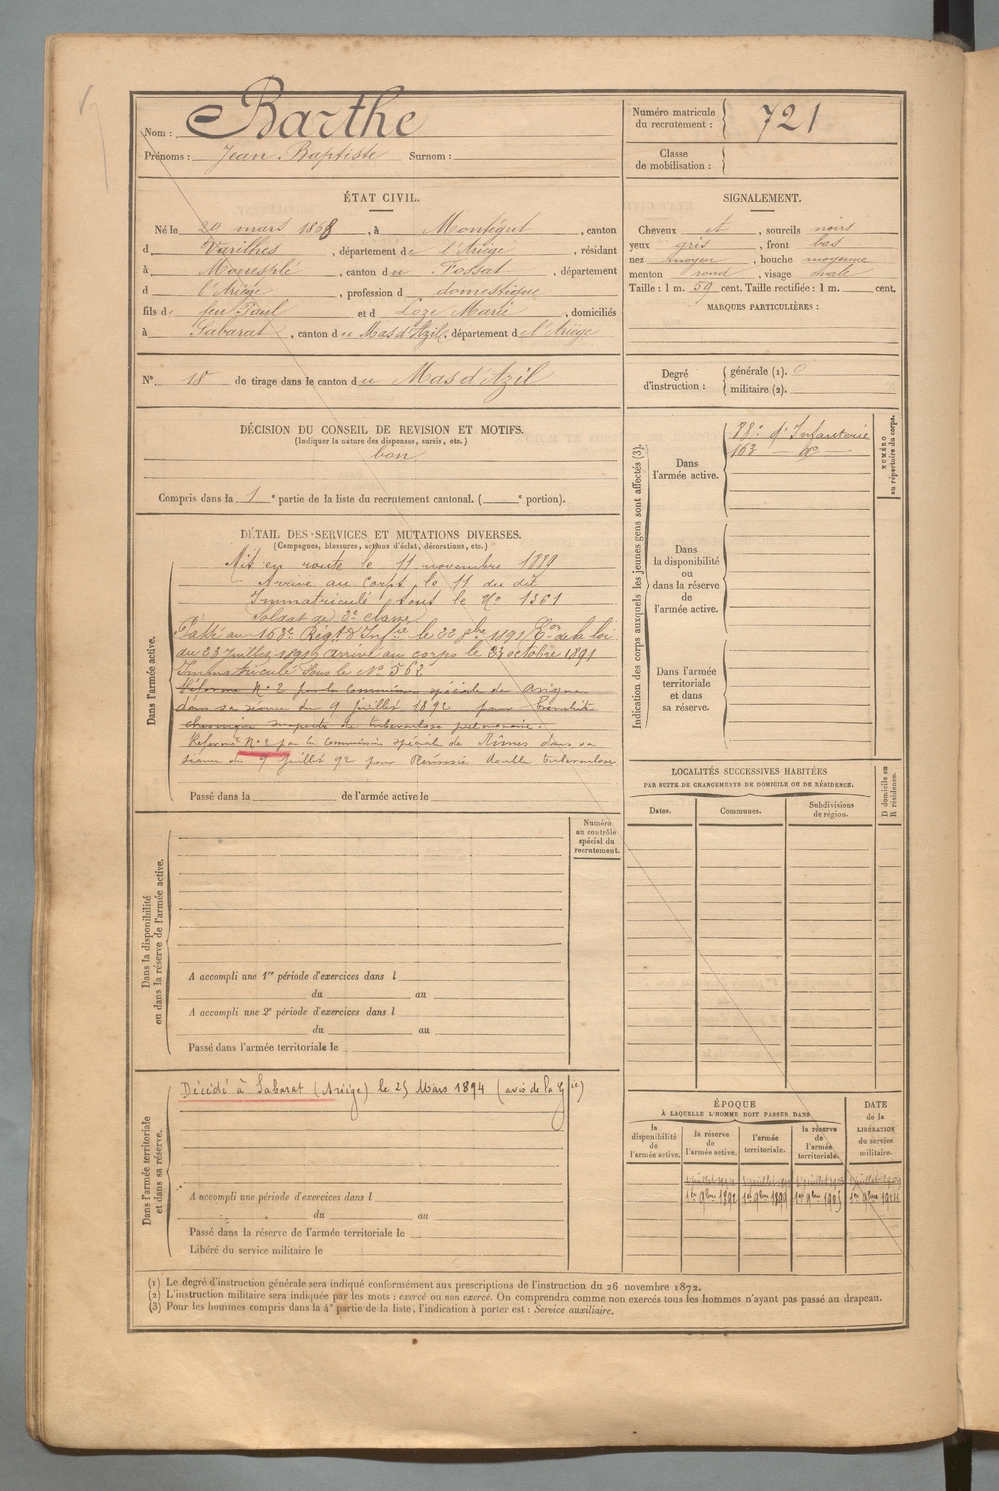 Nom : Barthe
Prénoms : Jean Baptiste Surnom :
Numéro matricule
du recrutement : 721
Classe
de mobilisation :
ÉTAT CIVIL.
Né le 20 mars 1868, à Montégut, canton
d Varilhes, département de l'Ariège, résidant
à Monesplé, canton du Fossat, département
d l'Ariège, profession d domestique
fils de feu Paul et d Loze Marie, domiciliés
à Sabarat, canton du Mas d'Azil, département d l'Ariège
SIGNALEMENT.
Cheveux et, sourcils noirs
yeux gris, front bas
nez moyen, bouche moyenne
menton rond, visage ovale
Taille : 1 m. 59 cent. Taille rectifiée : 1 m. cent.
MARQUES PARTICULIÈRES :
No 18 de tirage dans le canton du Mas d'Azil
Degré
d'instruction :
générale (1). 0
militaire (2).
DÉCISION DU CONSEIL DE REVISION ET MOTIFS.
(Indiquer la nature des dispenses, sursis, etc.)
bon
Compris dans la 1e partie de la liste du recrutement cantonal. ( e portion).
DÉTAIL DES SERVICES ET MUTATIONS DIVERSES.
(Campagnes, blessures, actions d'éclat, décorations, etc.)
Dans l'armée active.
Mis en route le 11 novembre 1889
Arrivé au corps le 11 du dit
Immatriculé sous le No 1361
Soldat de 2e classe
Passé au 163e Régt d'Infie le 22 8bre 1891 Eon de la loi
du 23 Juillet 1891 arrivé au corps le 23 octobre 1891
Immatriculé sous le No 562
Réformé No 2 par la Commission spéciale de Avignon
dans sa séance du 9 juillet 1892 pour Bronchite
chronique suspecte de tuberculose pulmonaire.
Réformé No 2 par la Commission spéciale de Nîmes dans sa
séance du 9 juillet 92 pour Pleurésie double tuberculose
Passé dans la de l'armée active le
Indication des corps auxquels les jeunes gens sont affectés (3).
Dans
l'armée active.
88e d'Infanterie
163 — do —
NUMÉRO
au répertoire du corps.
Dans
la disponibilité
ou
dans la réserve
de
l'armée active.
Dans l'armée
territoriale
et dans
sa réserve.
LOCALITÉS SUCCESSIVES HABITÉES
PAR SUITE DE CHANGEMENTS DE DOMICILE OU DE RÉSIDENCE.
Dates.
Communes.
Subdivisions
de région.
D domicile ou
R résidence.
Dans la disponibilité
ou dans la réserve de l'armée active.
Numéro
au contrôle
spécial du
recrutement.
A accompli une 1re période d'exercices dans l
du au
A accompli une 2e période d'exercices dans l
du au
Passé dans l'armée territoriale le
Dans l'armée territoriale
et dans sa réserve.
Décédé à Sabarat (Ariège) le 25 Mars 1894 (avis de la Gie)
A accompli une période d'exercices dans l
du au
Passé dans la réserve de l'armée territoriale le
Libéré du service militaire le
ÉPOQUE
À LAQUELLE L'HOMME DOIT PASSER DANS
la
disponibilité
de
l'armée active.
la réserve
de
l'armée active.
l'armée
territoriale.
la réserve
de
l'armée
territoriale.
DATE
de la
LIBÉRATION
du service
militaire.
1er 9bre 1892 1er 9bre 1899 1er 9bre 1905 1er 9bre 1914
(1) Le degré d'instruction générale sera indiqué conformément aux prescriptions de l'instruction du 26 novembre 1872.
(2) L'instruction militaire sera indiquée par les mots : exercé ou non exercé. On comprendra comme non exercés tous les hommes n'ayant pas passé au drapeau.
(3) Pour les hommes compris dans la 4e partie de la liste, l'indication à porter est : Service auxiliaire.